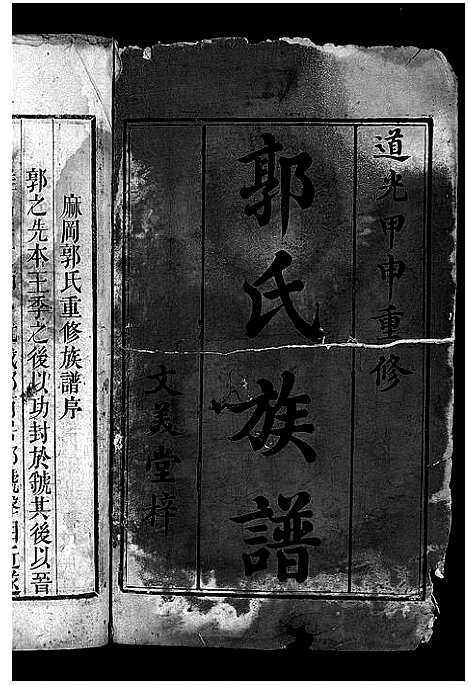 道光甲申重修
郭氏族譜
文美堂梓
麻岡郭氏重修族譜序
郭之先本王季之後以功封於虢其後以晉